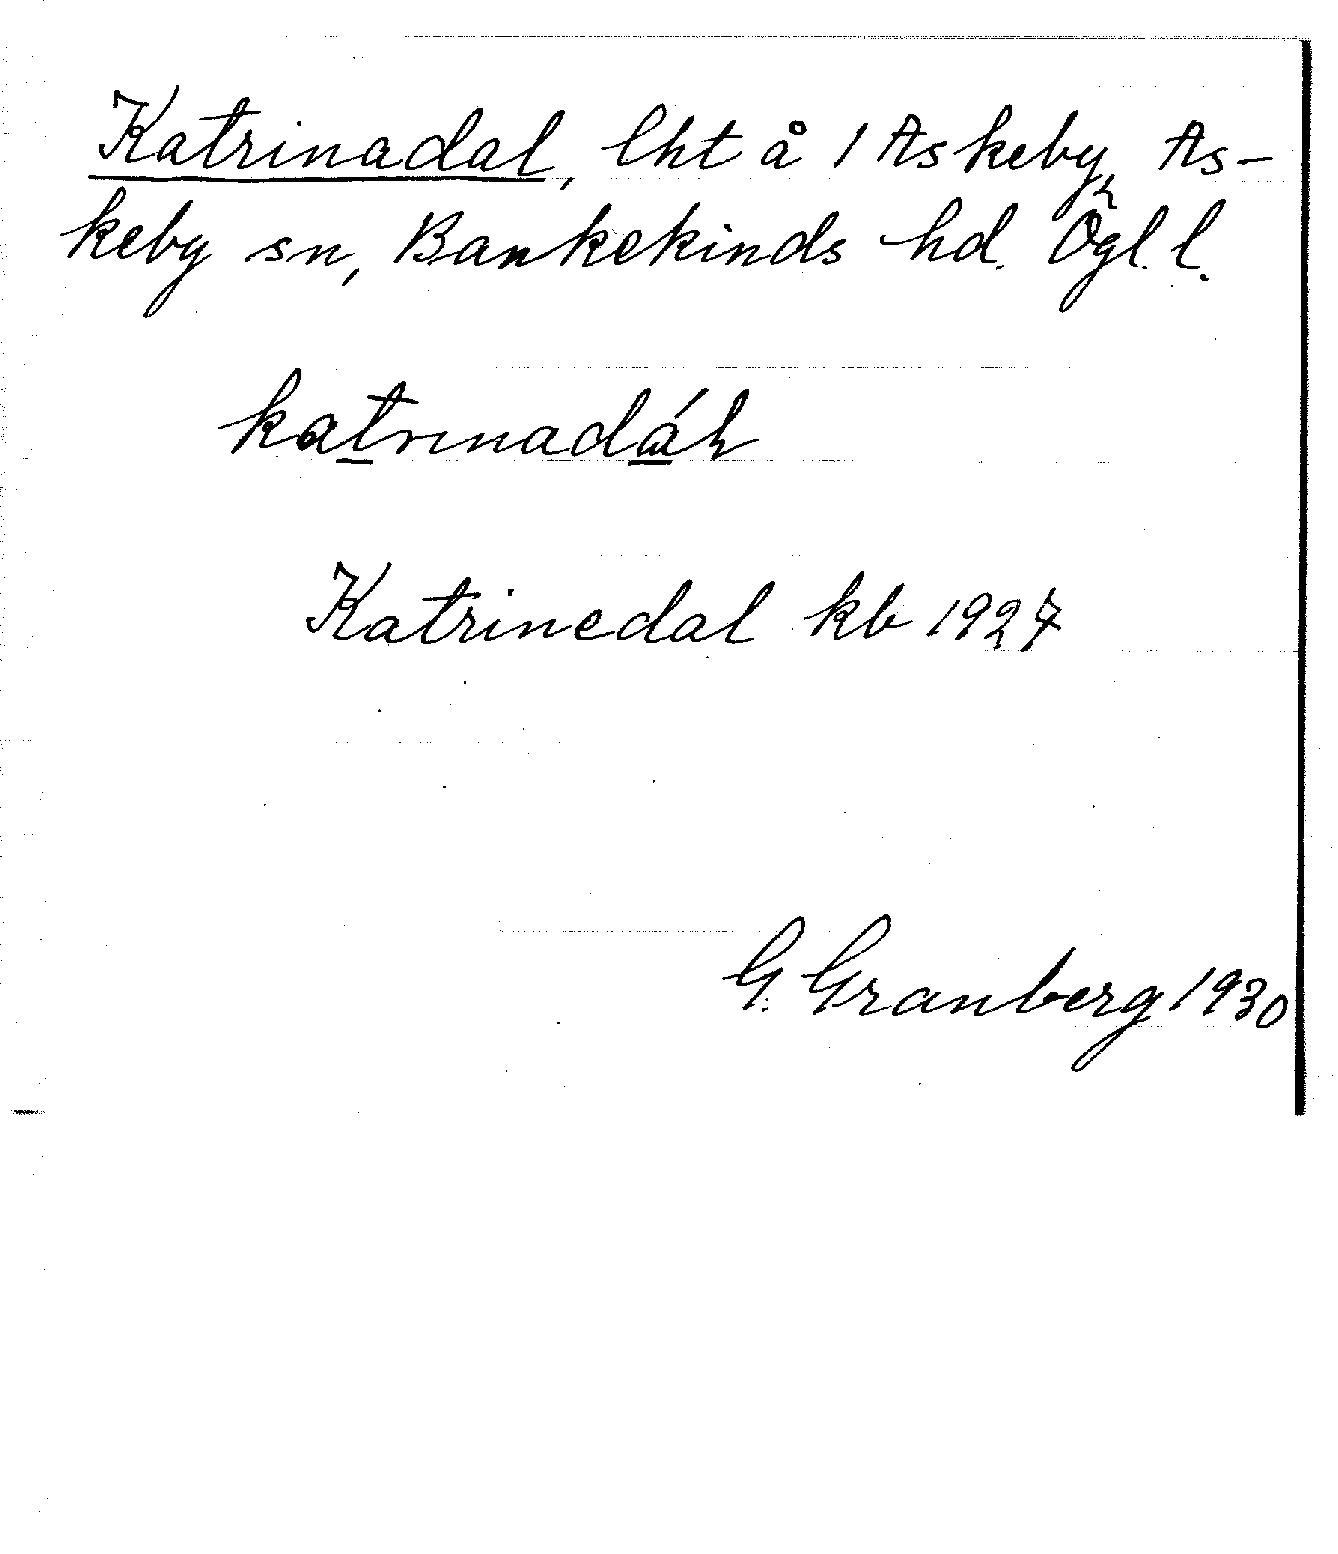 Katrinadal, lht å 1 Askeby, As-
keby sn, Bankekinds hd. Ögl. l.
katrinadáɫ
Katrinedal kb 1927
G. Granberg 1930